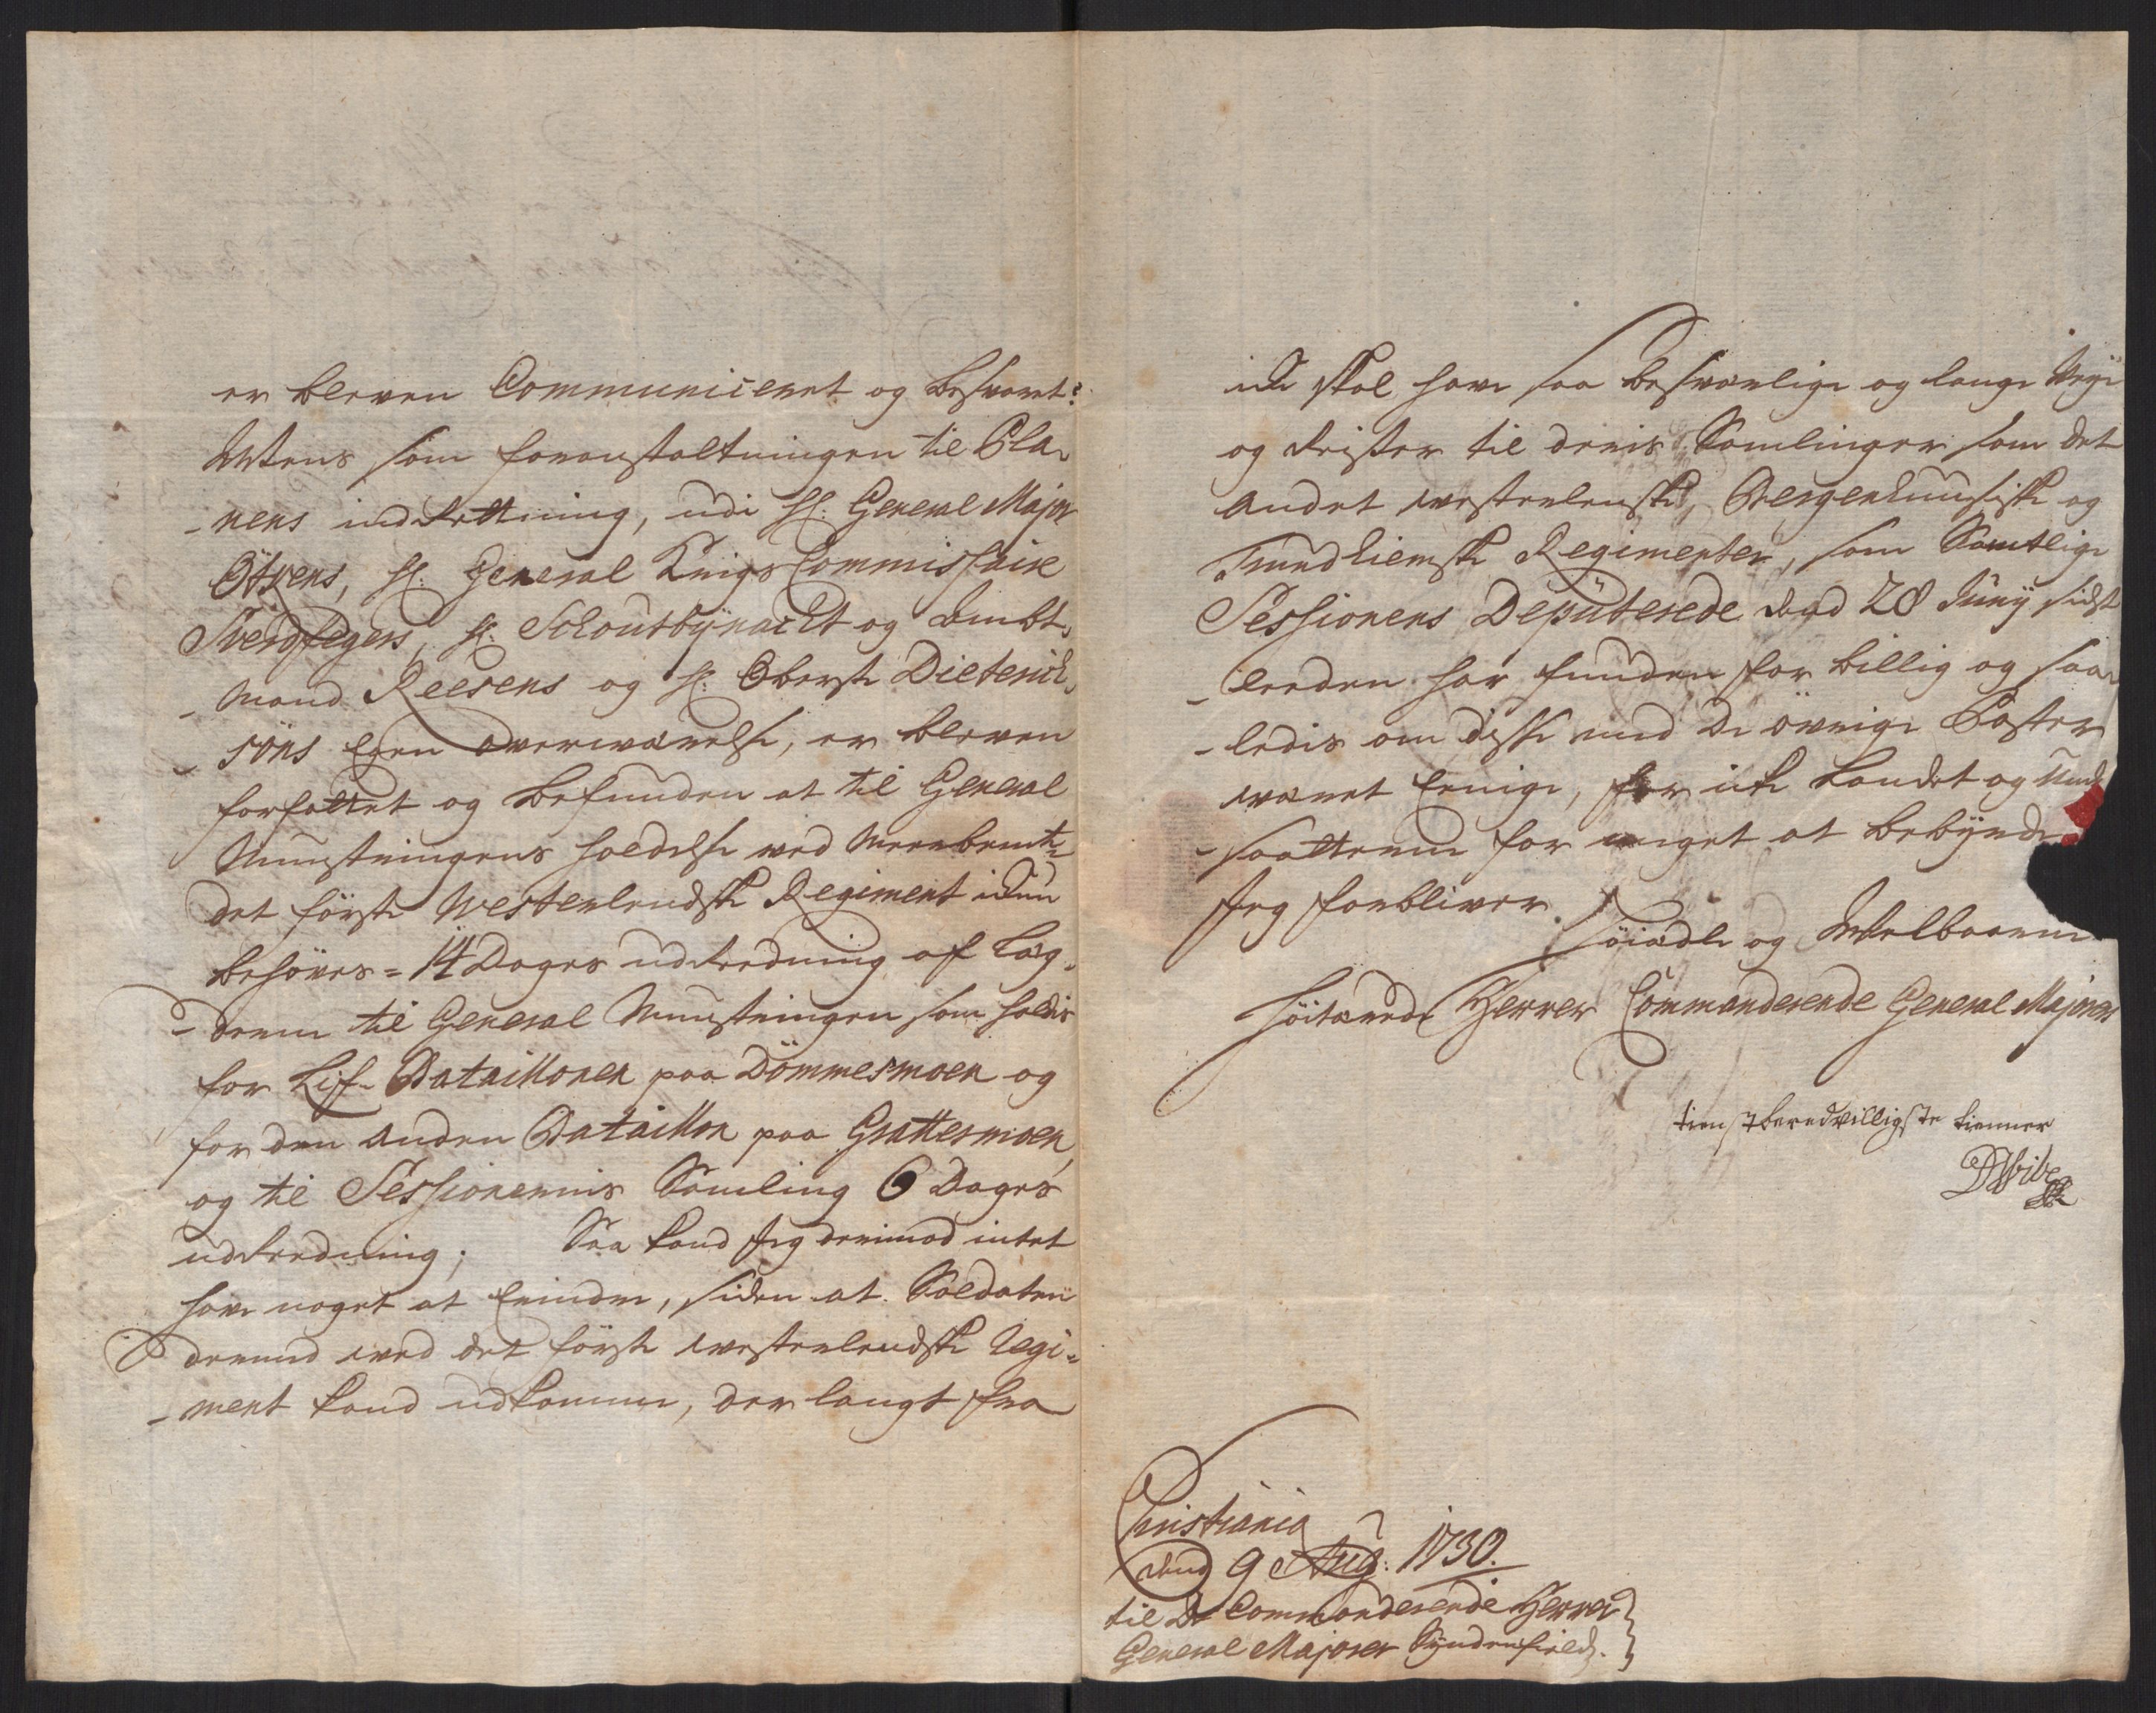 er bleven Communiceret og besvaret:
Mens som foranstaltningen til Pla-
-nens indrettning, udi H: General Major
Ötkens, H: General Krigs Commissaire
Sverdfegers, H: Schoutbÿnacht og Ambt-
-mand Reesens og H: Oberste Dieterich-
-söns Egen overværelse, er bleven
forfattet og befunden at til General
Munstringens holdelse ved Meerbemte
det förste Westerlendske Regiment ickun
behöves = 14 Dages udredning af Læg-
-derne til General Munstringen som holdes
for Liff-Bataillonen paa Dömmesmoen og
for den anden Bataillon paa Grattesmoen,
og til Sessionernis Samling 6 Dages
udredning; Saa kand Jeg derimod intet
have noget at Erindre, siden at Soldaten
dermed ved det förste westerlendske Regi-
-ment kand udkomme, der langt fra
icke skal have saa besværlige og lange Veje
og Reiser til deris Samlinger som det
Andet westerlenske, Bergenhuusiske og
Trundhiemske Regimenter, som Samtlige
Sessionens Deputerede dend 28 Junÿ sidst-
-leeden har funden for billig og saa-
-ledis om disse med de övrige Poster
været Eenige, for icke Landet og Und-
-saatterne for meget at bebÿrde
Jeg forbliver.
Höiædle og Welbaarne
Höitærede Herrer Commanderende General Majorer
tienstberedvilligste tienner
DWibe
Christiania
dend 9 Aug: 1730.
til De Commanderende Herrer
General Majorer Syndenfields.